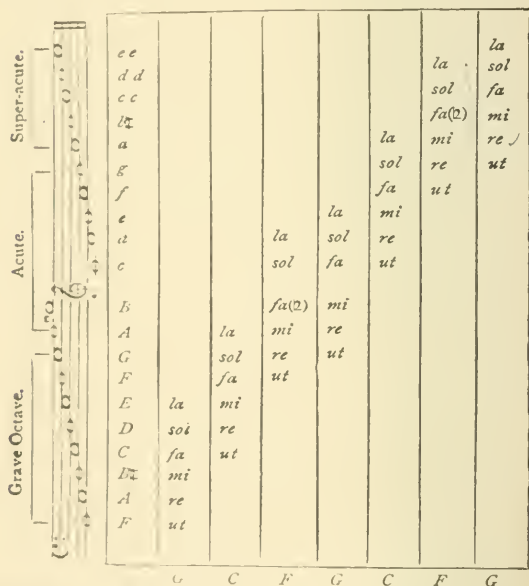 Super-acute.
Acute.
Grave Octave.
e e la
d d la sol
c c sol fa
b♮ fa(2) mi
a la mi re
g sol re ut
f fa ut
e la mi
d la sol re
c sol fa ut
B fa(2) mi
A la mi re
G sol re ut
F fa ut
E la mi
D sol re
C fa ut
B♮ mi
A re
F ut
G C F G C F G